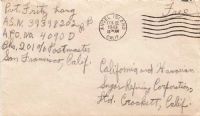 Pvt. Fritz Lang
A.S.N. 39398202
A.P.O. No 4090 D
c/o Postmaster
San Francisco, Calif.
Free
California and Hawaiian
Sugar Refining Corporation,
Ltd. Crockett, Calif.